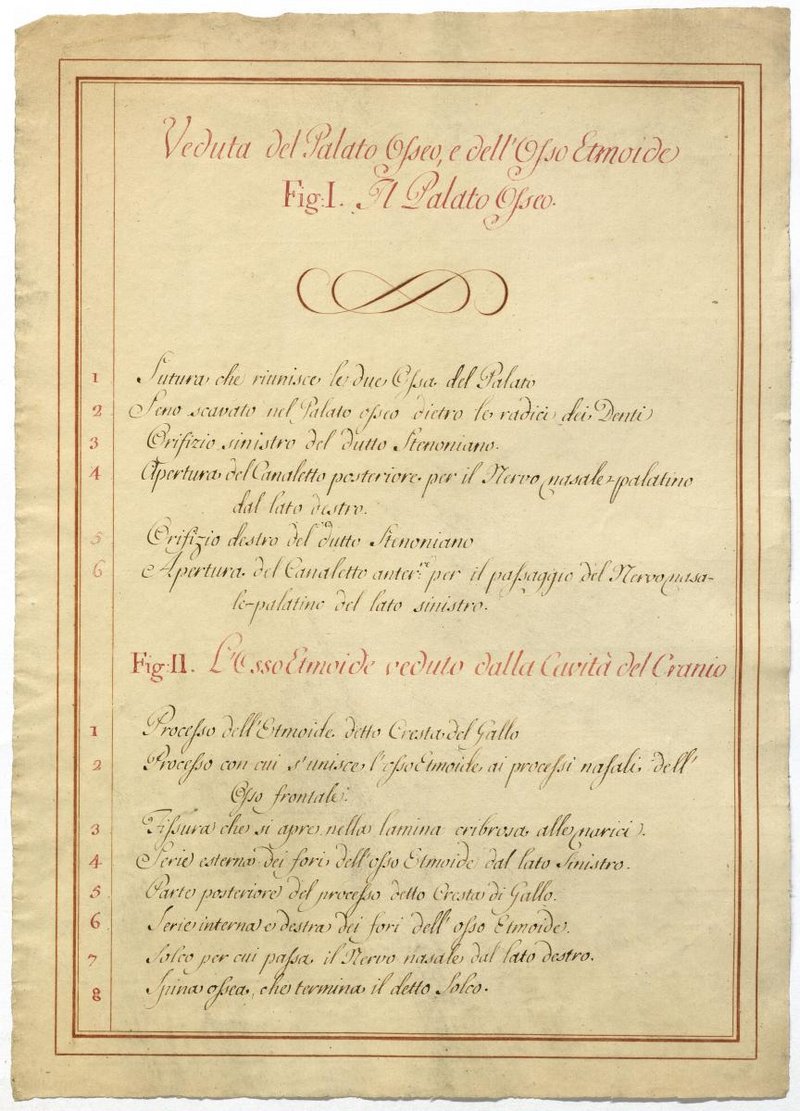 Veduta del Palato Osseo, e dell'Osso Etmoide
Fig: I. Il Palato Osseo.
1 Sutura che riunisce le due Ossa del Palato
2 Seno scavato nel Palato osseo dietro le radici dei Denti
3 Orifizio sinistro del dutto Stenoniano.
4 Apertura del Canaletto posteriore per il Nervo nasale-palatino
dal lato destro.
5 Orifizio destro del dutto Stenoniano
6 Apertura del Canaletto anter.re per il passaggio del Nervo nasa-
le-palatino del lato sinistro.
Fig: II. L'Osso Etmoide veduto dalla Cavità del Cranio
1 Processo dell'Etmoide detto Cresta del Gallo
2 Processo con cui s'unisce l'osso Etmoide ai processi nasali dell'
Osso frontale.
3 Fissura che si apre nella lamina cribrosa alle narici.
4 Serie esterna dei fori dell'osso Etmoide dal lato Sinistro.
5 Parte posteriore del processo detto Cresta di Gallo.
6 Serie interna e destra dei fori dell'osso Etmoide.
7 Solco per cui passa il Nervo nasale dal lato destro.
8 Spina ossea, che termina il detto Solco.